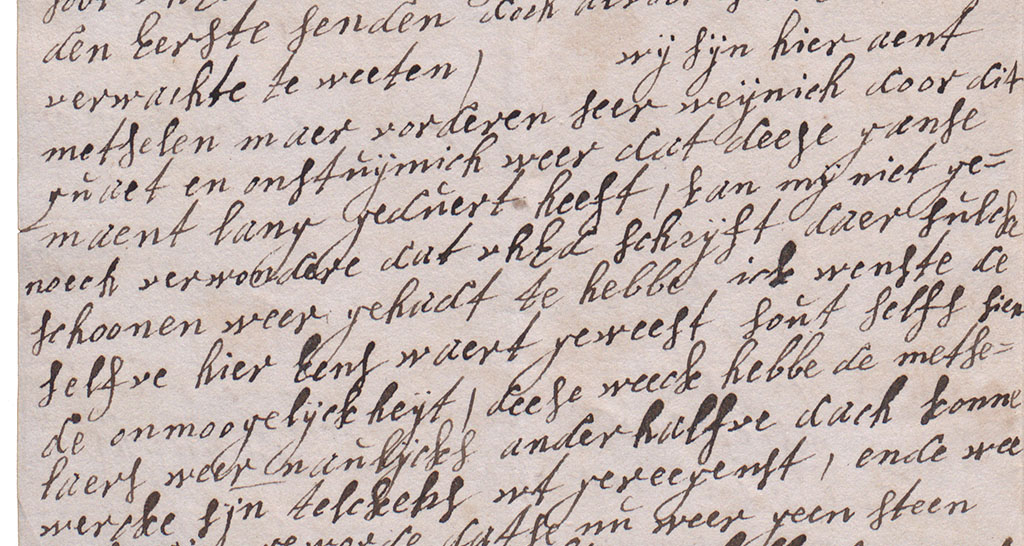 den eerste senden doch
verwachte te weeten / wij sijn hier aent
methselen maer vorderen seer weijnich door dit
quaet en onstuijmich weer dat deese ganse
maent lang geduert heeft / kan mij niet ge=
noech verwondere dat schrijft daer sulcke
schoonen weer gehadt te hebbe ick wenste de
selfve hier eens waert geweest sout selfs sien
de onmoogelijckheijt / deese weeck hebbe de methse=
laers weer naulijcks anderhalfve dach konne
wercke sijn telckens wt gereegenst / ende wee
nu weer geen steen